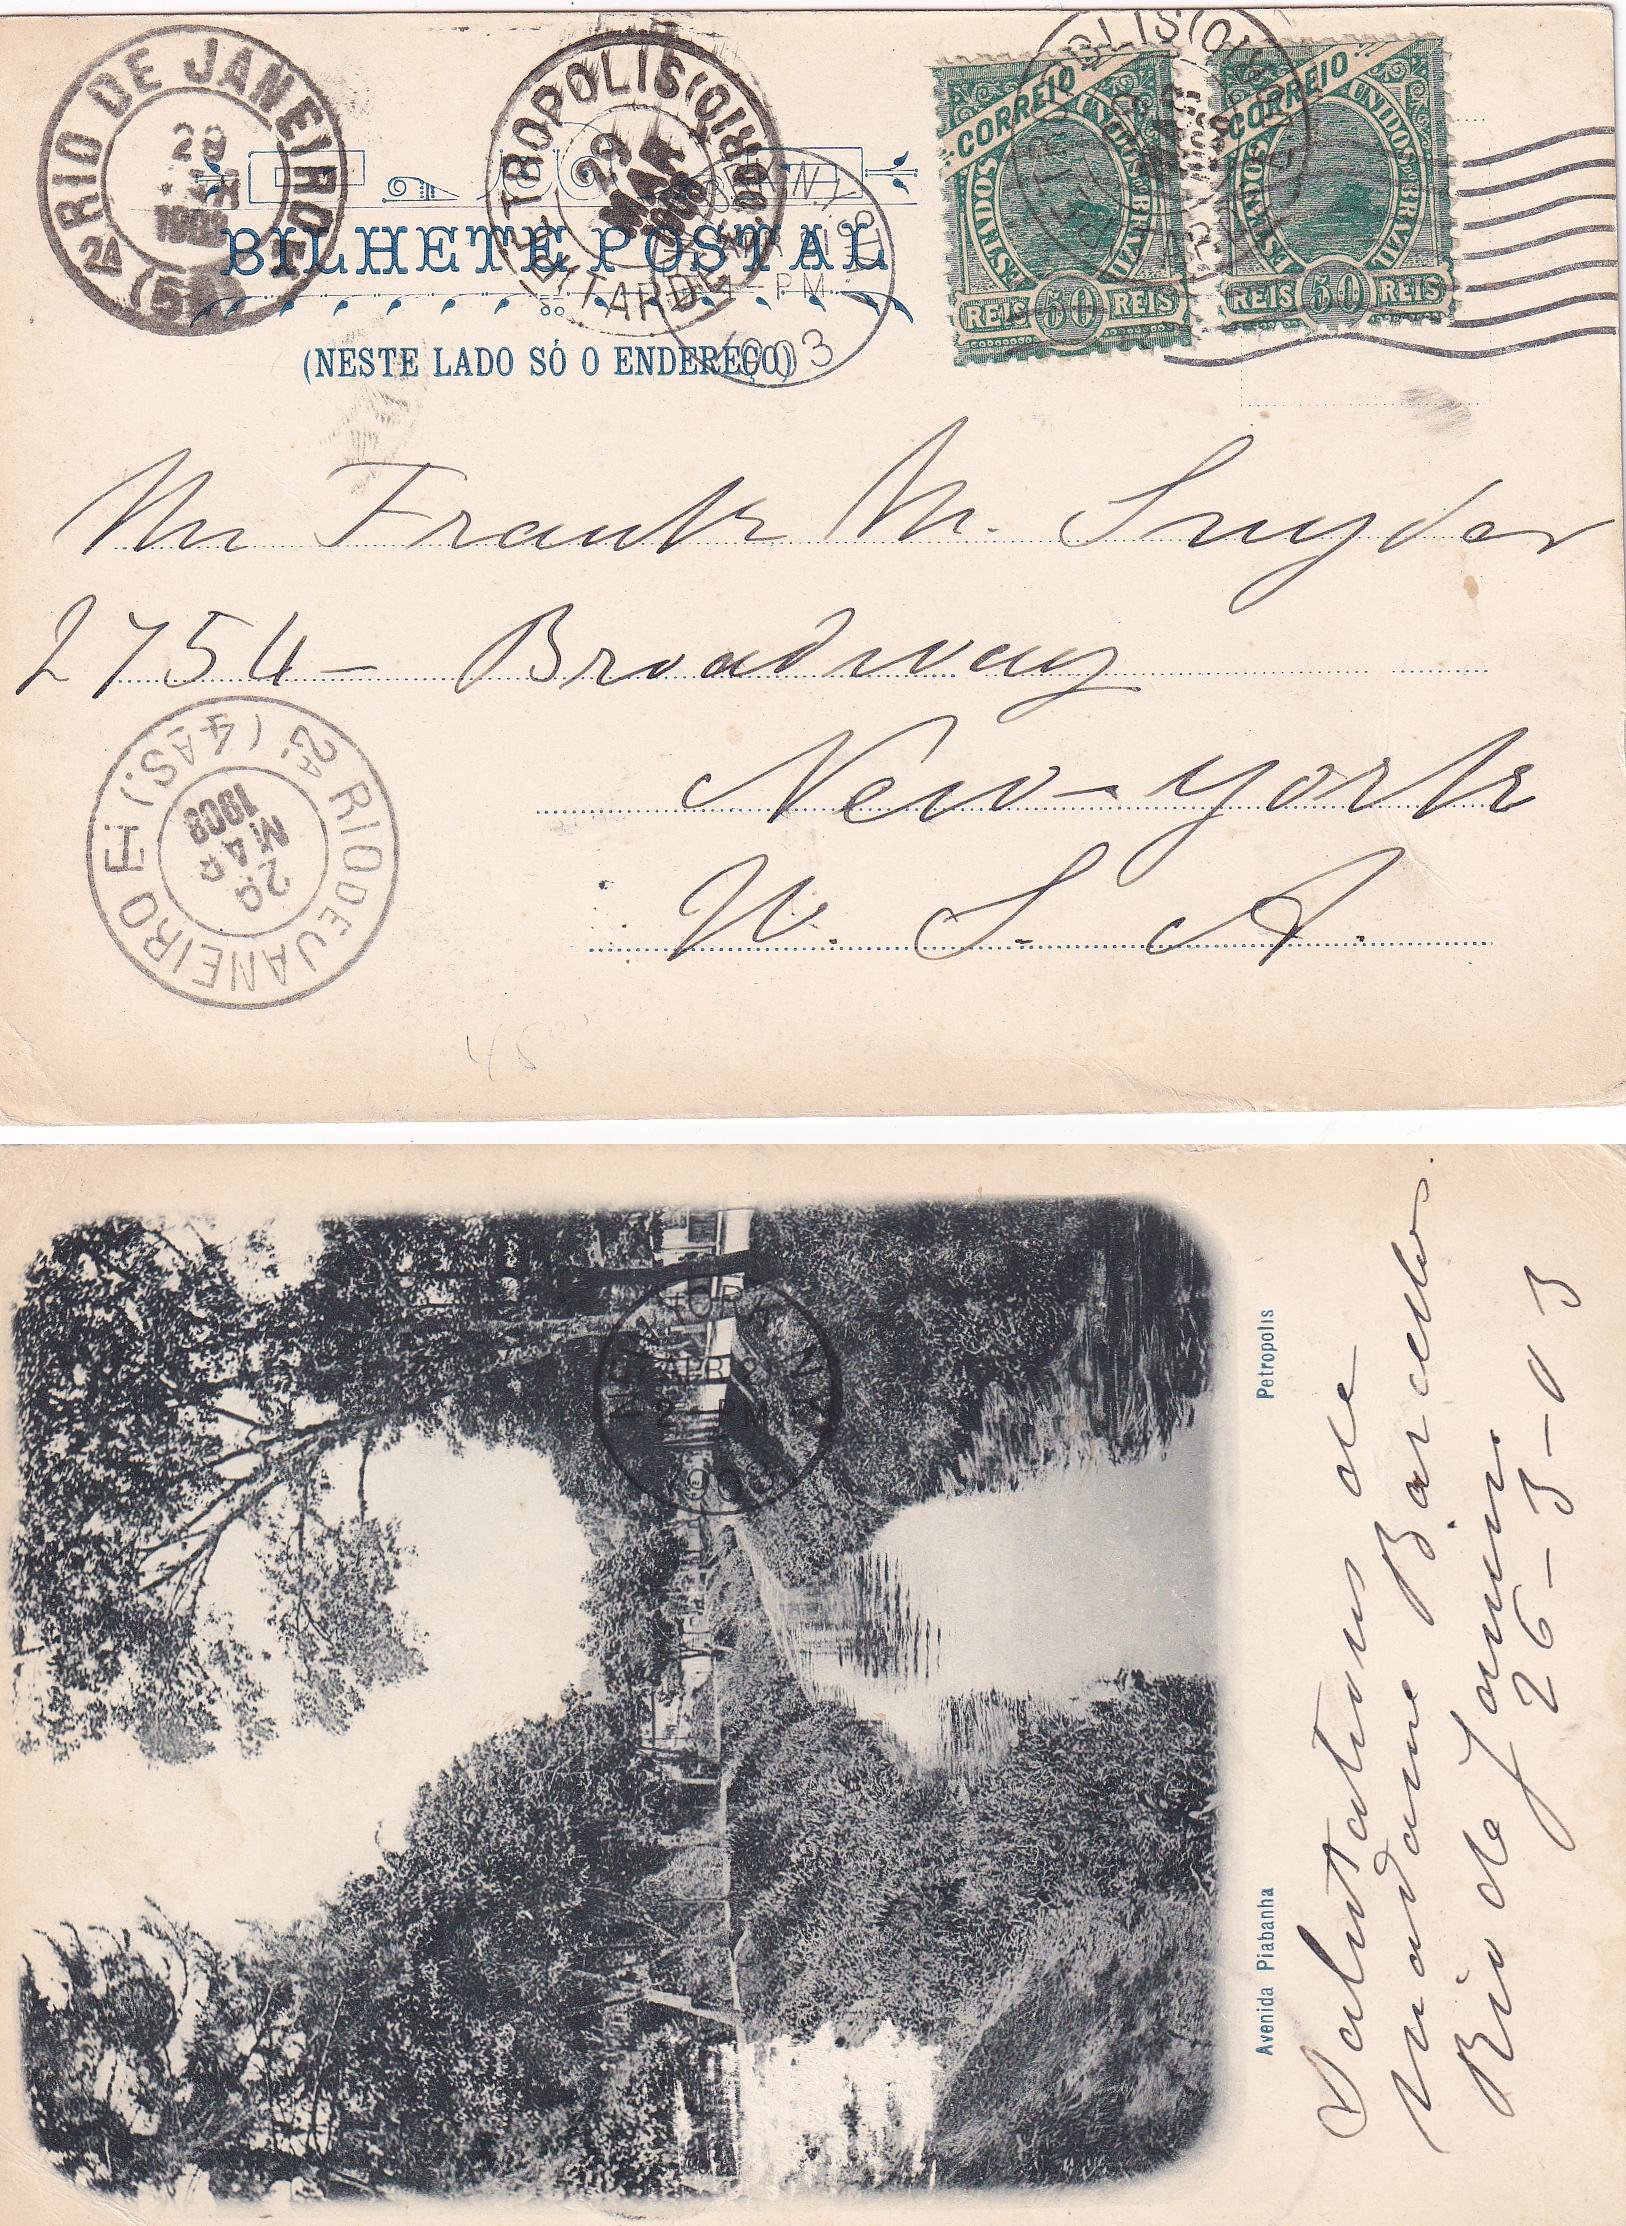 RIO DE JANEIRO
2A
(5
PETROPOLIS (RIO)
29
MAR
1903
TARDE
N.Y.
PM
1903
CORREIO
ESTADOS UNIDOS DO BRAZIL
REIS 50 REIS
CORREIO
ESTADOS UNIDOS DO BRAZIL
REIS 50 REIS
BILHETE POSTAL
(NESTE LADO SÓ O ENDEREÇO)
Mr Frank M. Snyder
2754 – Broadway
New-york
U. S. A.
2ª RIO DE JANEIRO
(4 AS.)
29
MAR
1903
45
NEW YORK, N.Y.
APR
PM
Avenida Piabanha Petropolis
Salutations de
madame Barcellos
Rio de Janeiro
26-3-03